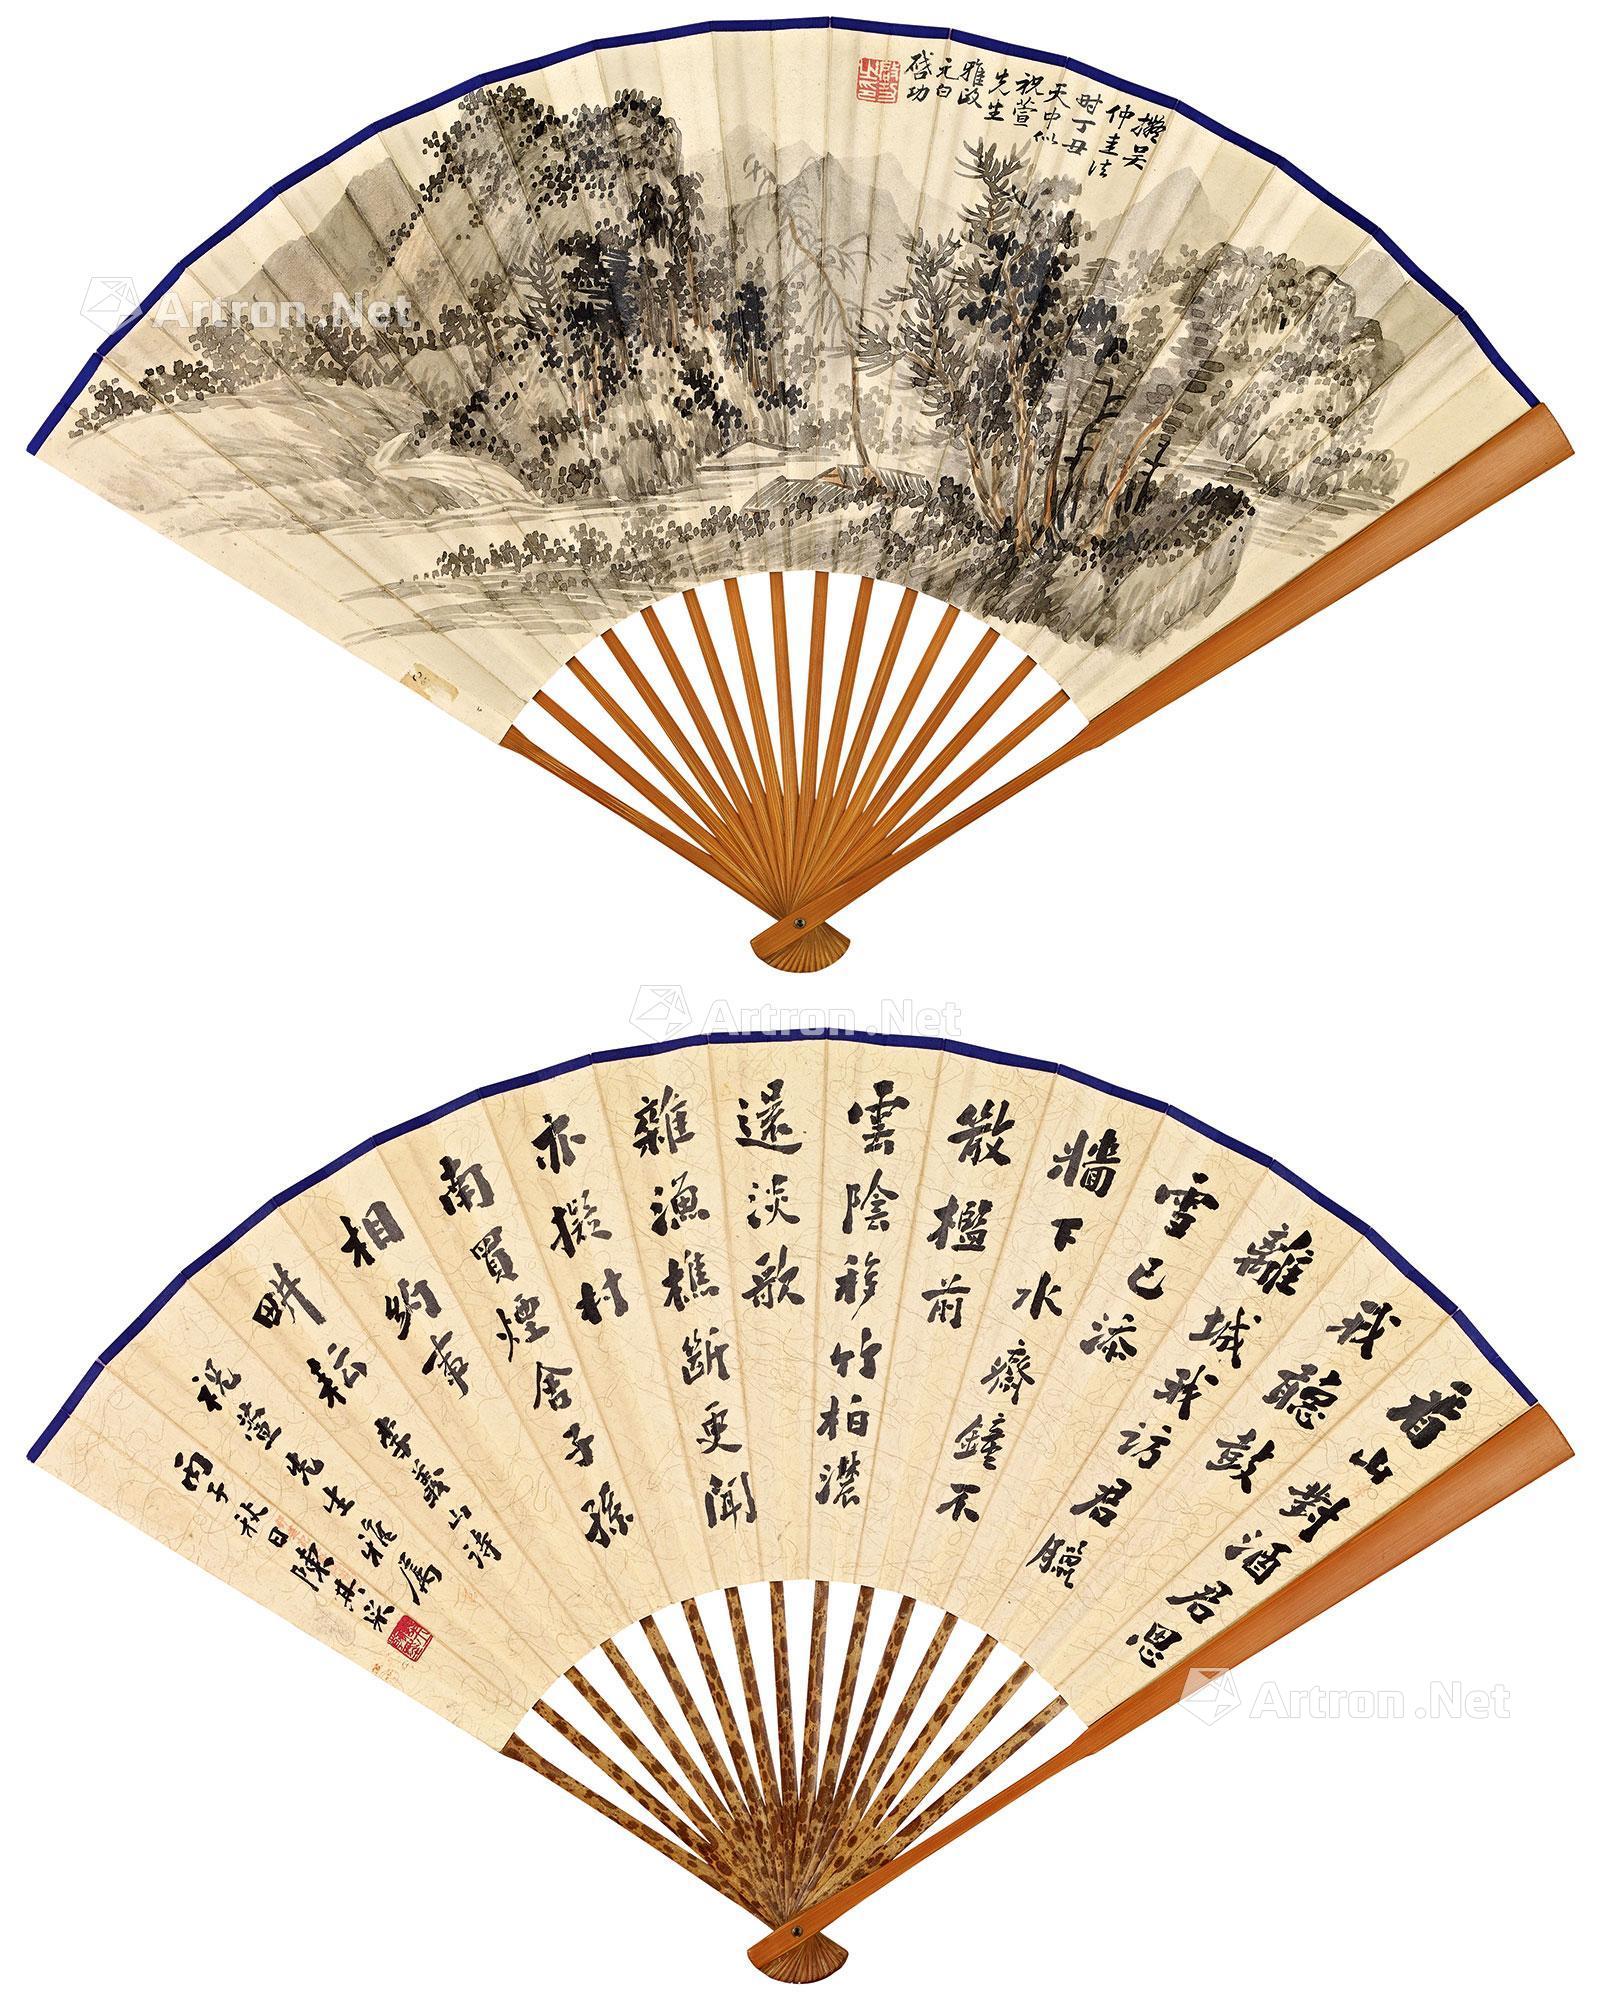 擬吳
仲圭法
时丁丑
天中似
祝萱
先生
雅政
元白
啓功
Artron.Net
Artron.Net
看山對酒君思
我聽鼓
離城我訪君臘
雪已添
牆下水齋鐘不
散檻前
雲陰移竹柏濃
還淡歌
雜漁樵斷更聞
亦擬村
南買煙舍子孫
相約事
畊耘 李義山詩
祝萱先生雅屬
丙子秋日陳其采
Artron.Net